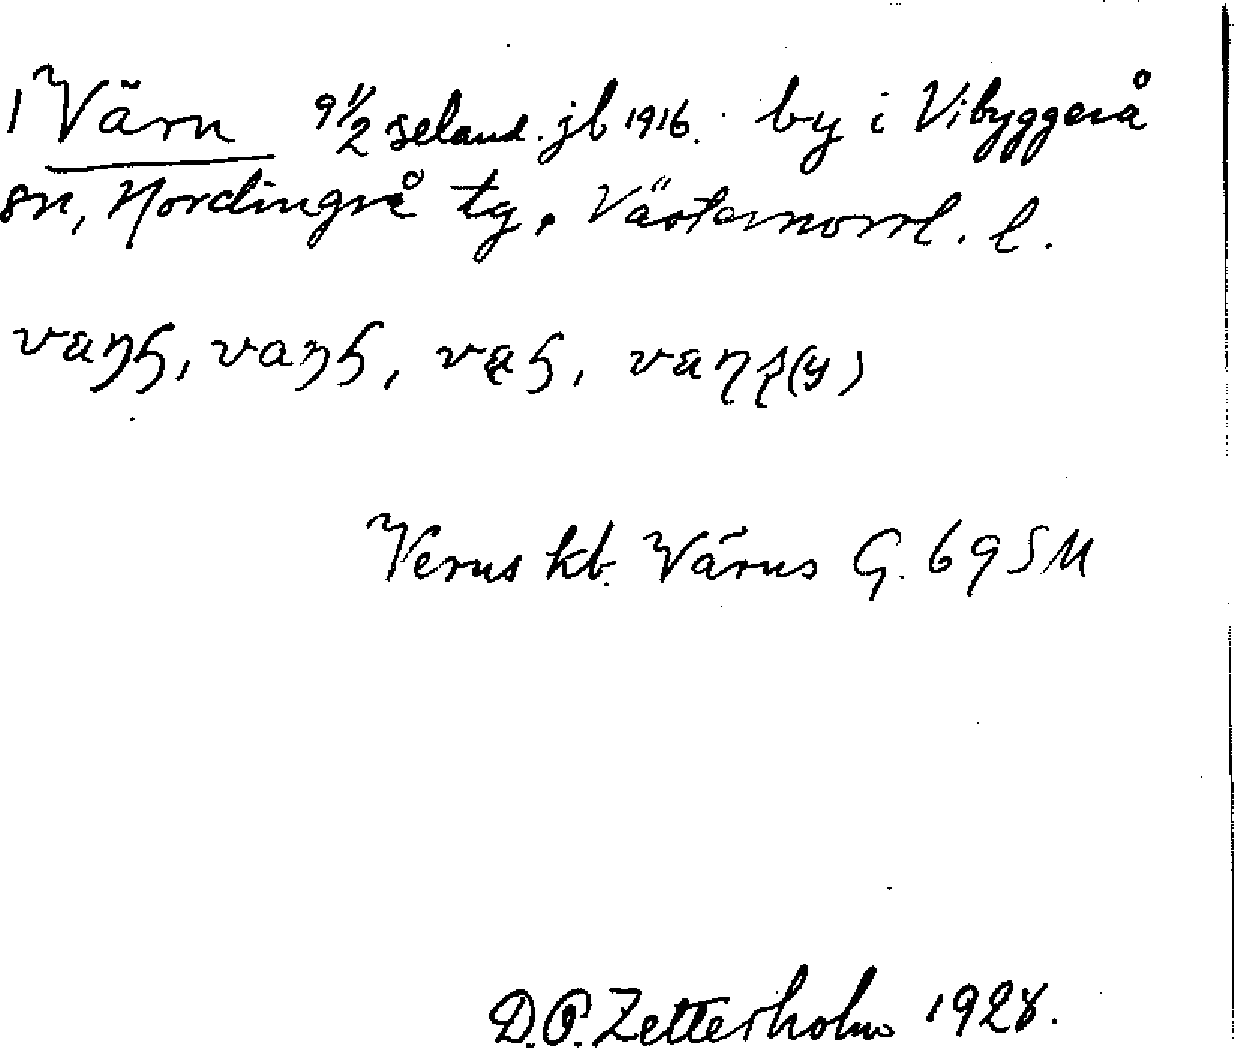 1 Värn 9 1/2 seland. jb 1916. by i Vibyggerå
sn, Nordingrå tg, Västernorrl. l.
Verus kb. Värus G. 69 SM
D.O. Zetterholm 1928.